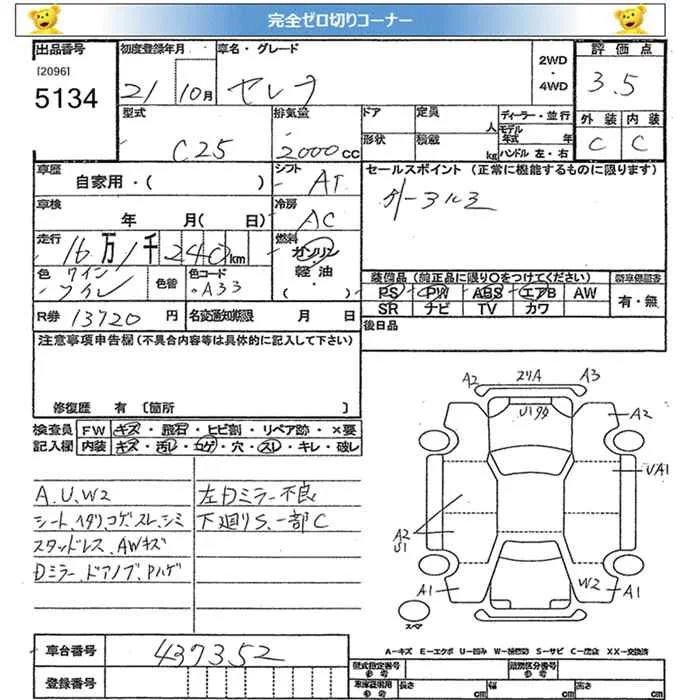 完全ゼロ切りコーナー
出品番号 初度登録年月 車名・グレード 2WD・4WD 評価点
[2096]
5134 21 10月 セレナ 3.5
型式 排気量 ドア 定員 人 ディーラー・並行 外装 内装
C25 2000cc 形状 積載 kg モデル年式 年 ハンドル 左・右 C C
車歴 自家用・( ) シフト AT セールスポイント (正常に機能するものに限ります)
車検 年 月( 日) 冷房 AC
走行 16万1千240km 燃料 ガソリン・軽油・( )
色 ワイン 色替 色コード A33 装備品 (純正品に限り〇をつけてください) 新車保証書
PS PW ABS エアB AW 有・無
SR ナビ TV カワ
R券 13720円 名変通知期限 月 日 後日品
注意事項申告欄 (不具合内容等は具体的に記入して下さい)
修復歴 有 〔箇所 〕
検査員 FW キズ・飛石・ヒビ割・リペア跡・×要
記入欄 内装 キズ・汚レ・コゲ・穴・スレ・キレ・破レ
A.U.W2 左Dミラー不良
シート.ヘタリ.コゲ.スレ.シミ 下廻りS.一部C
スタッドレス.AWキズ
Dミラー.ドアノブ.Pハゲ
A2 A3
A2
UA1
A2
U1
W2
A1 A1
スペア
A−キズ E−エクボ U−凹み W−補修跡 S−サビ C−腐食 XX−交換済
車台番号 437352 型式指定番号 参考 類別区分番号 参考
登録番号 車庫証明用 参考 長さ cm 幅 cm 高さ cm